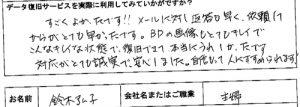 データ復旧サービスを実際に利用してみていかがですか?
すごくよかったです!!メールに対し返答が早く、依頼して
からがとても早かったです。BDの画像もとてもキレイで
こんなキレイな状態で、復旧できて本当にうれしかったです
対応がとても誠実で安心しました。自信もって人にすすめられます!
お名前 鈴木 会社名またはご職業 主婦